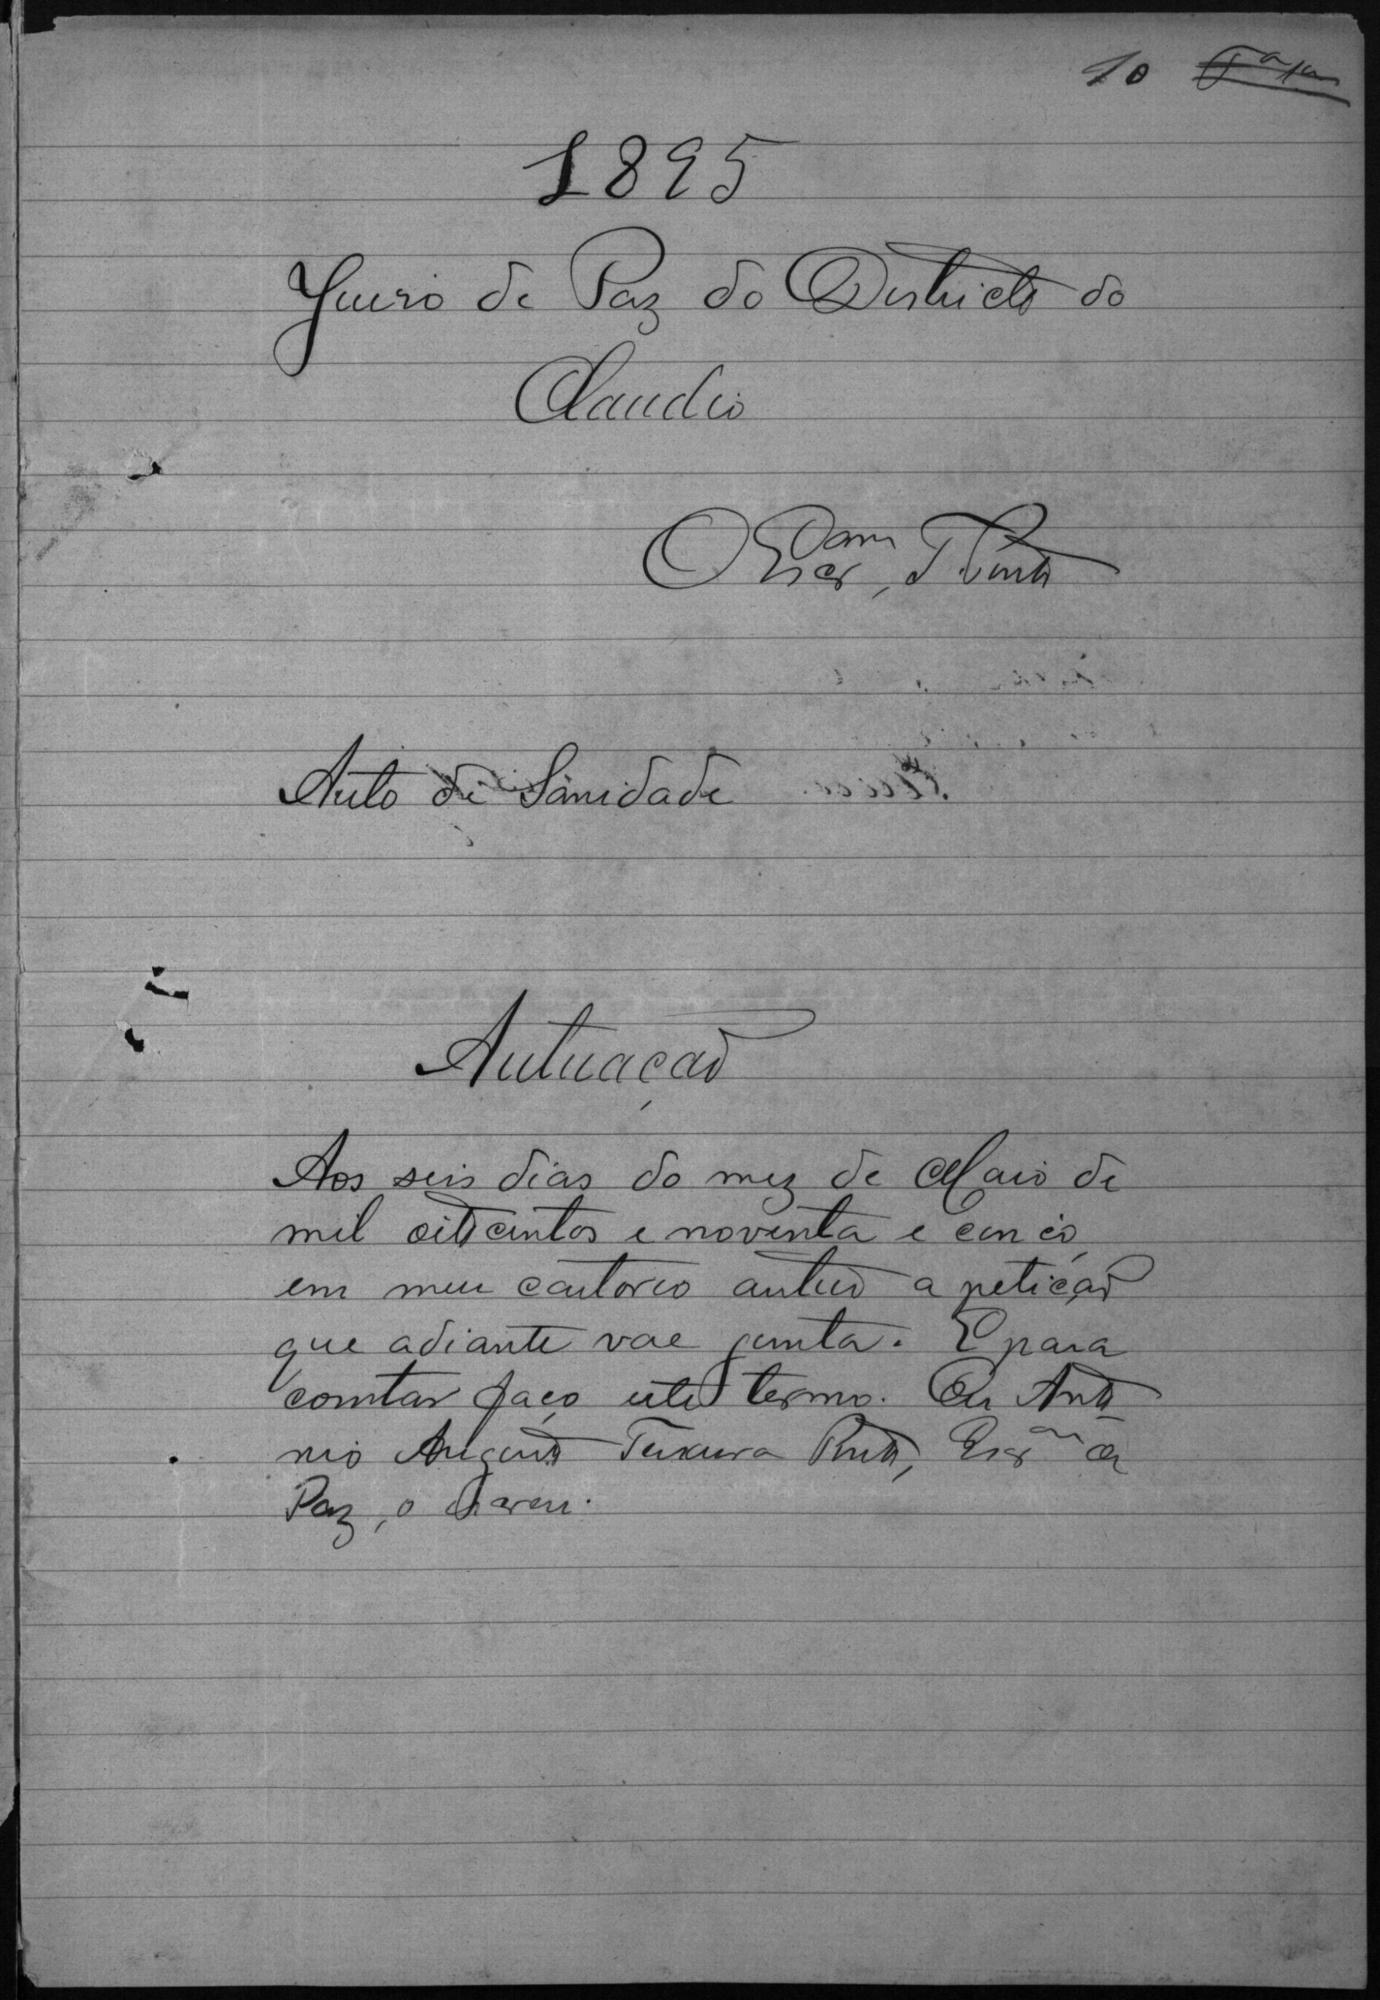 10
1895
Juizo de Paz do Districto do
Claudio
O Escr.am T. Pinto
Auto de Sanidade
Autuação
Aos seis dias do mez de Maio de
mil oitocentos e noventa e cinco,
em meu cartorio autuo a petição
que adiante vae junta. E para
constar faço este termo. Eu Anto
nio Augusto Teixeira Pinto, Escr.am de
Paz, o escrevi.